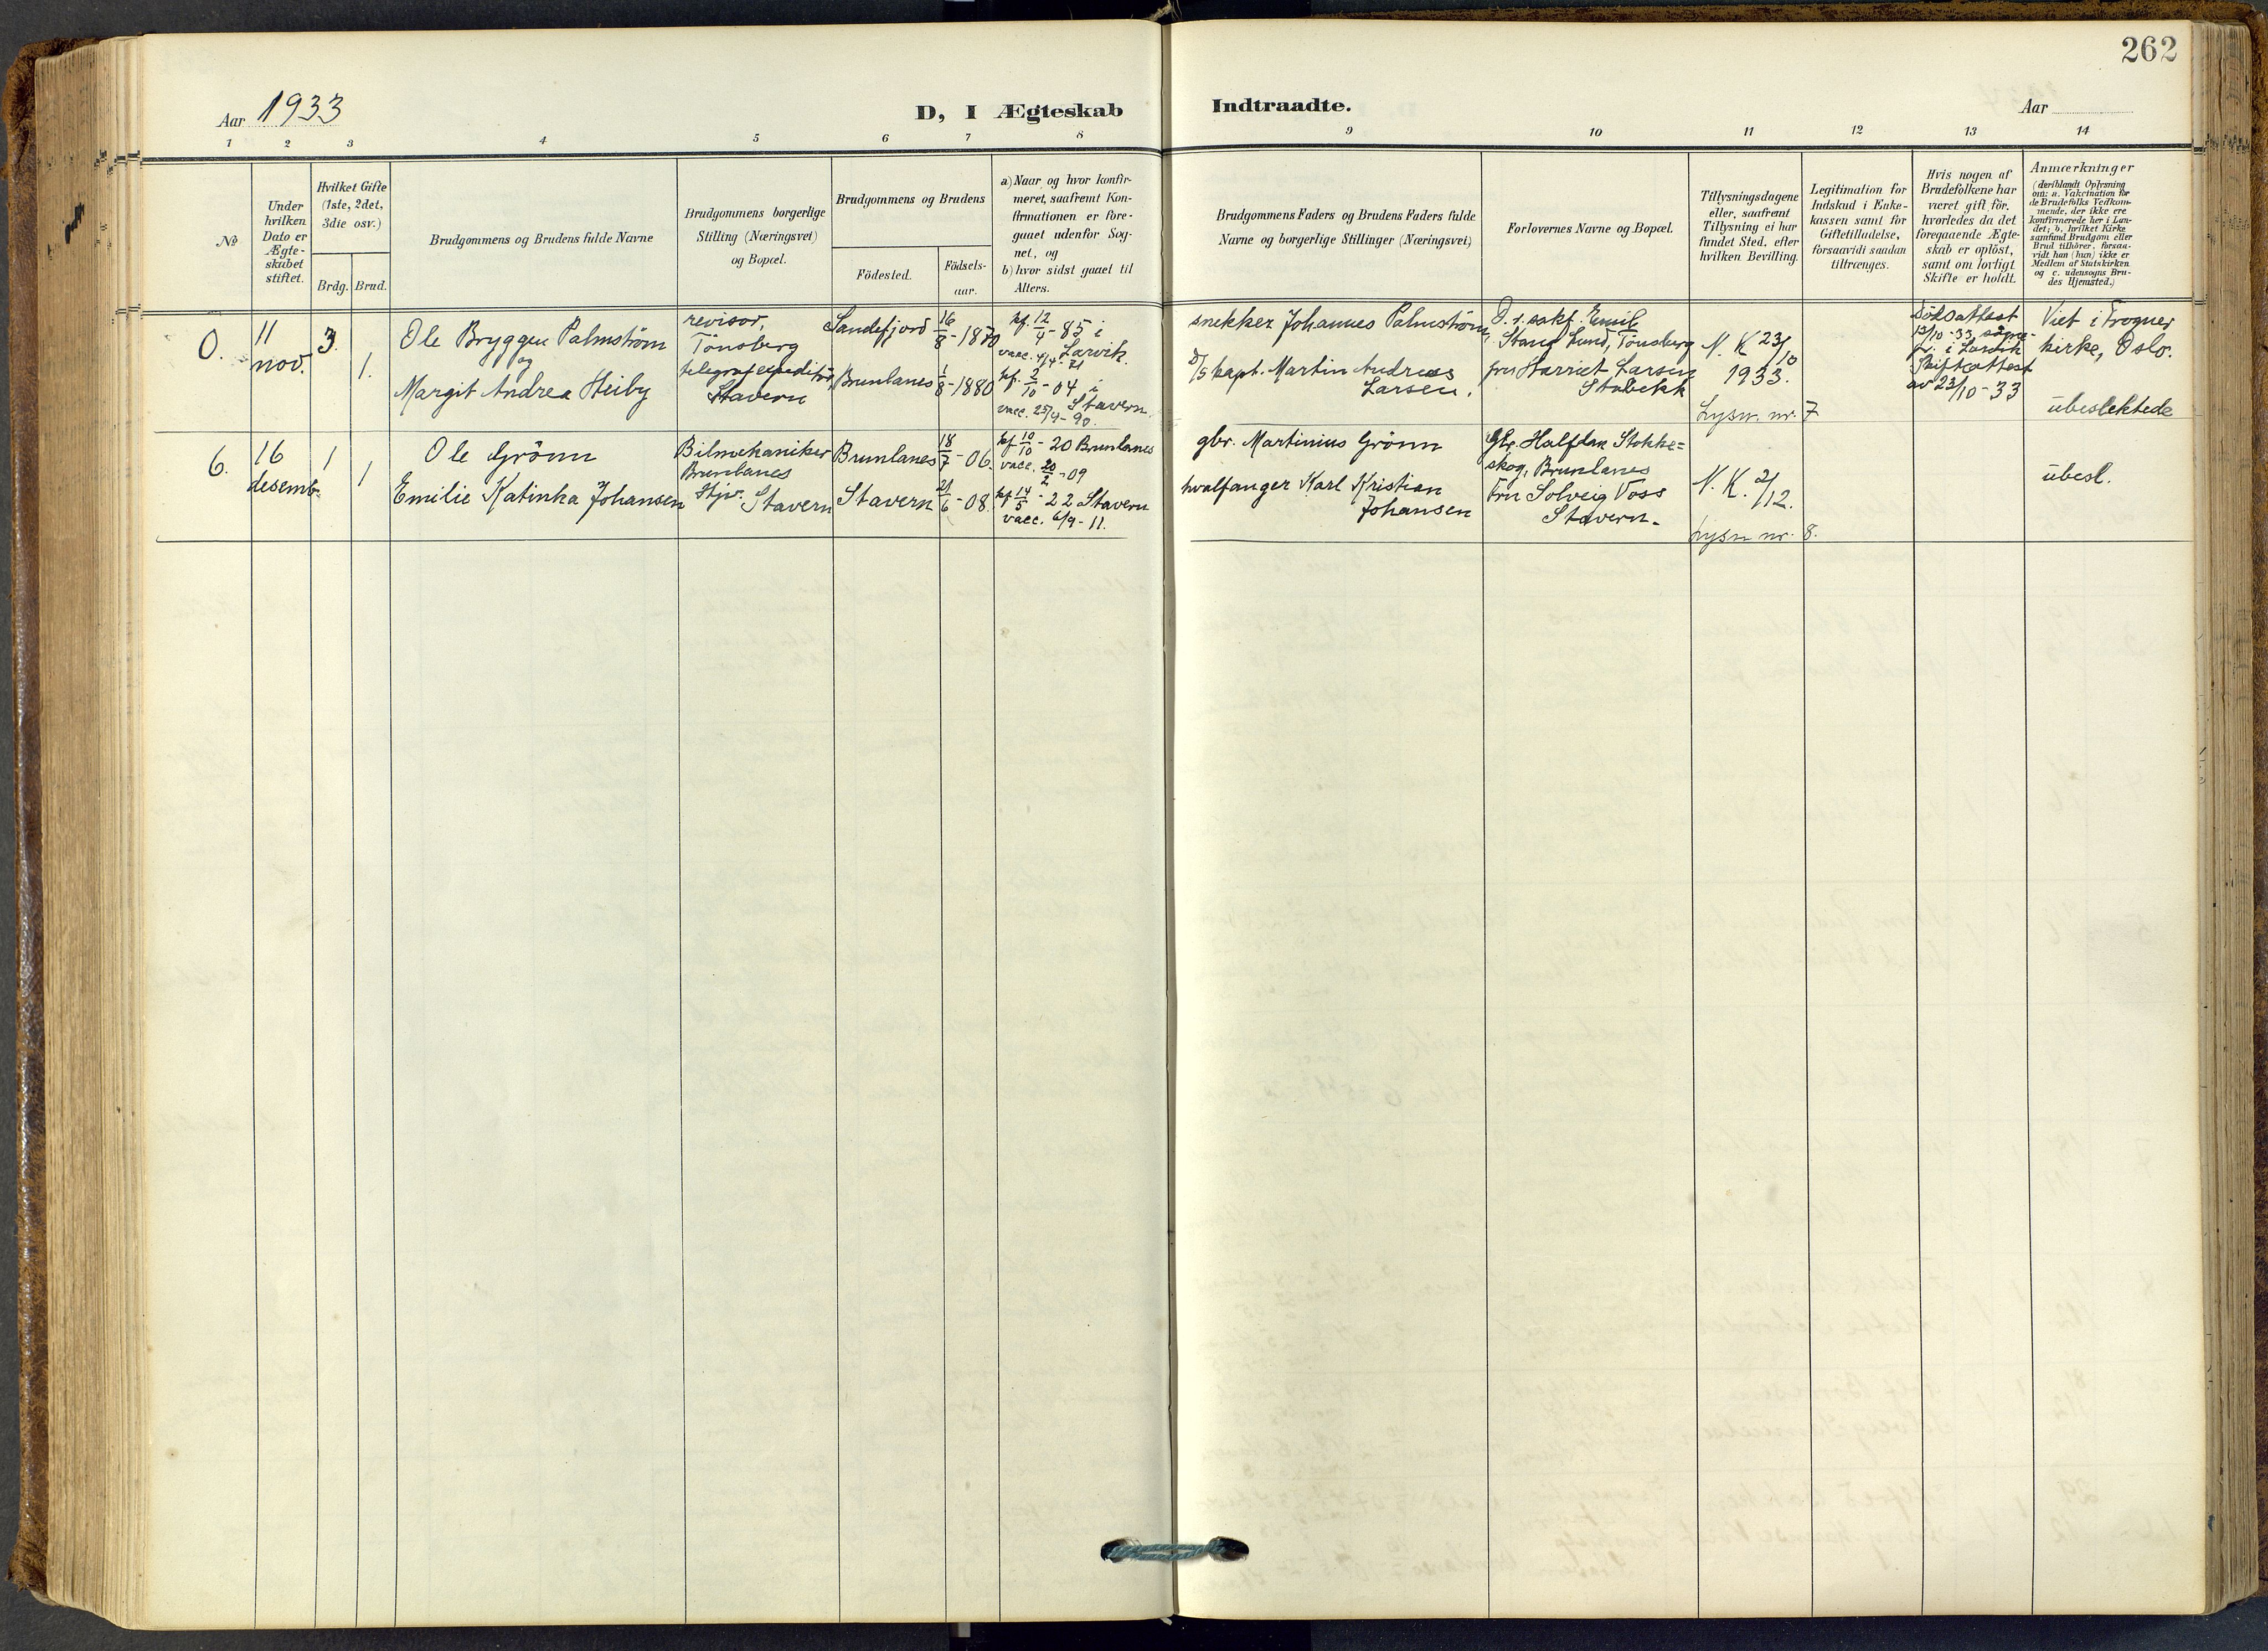 262
Aar 1933
D, I Ægteskab Indtraadte.
Aar
1 2 3 4 5 6 7 8 9 10 11 12 13 14
No
Under
hvilken
Dato er
Ægte-
skabet
stiftet.
Hvilket Gifte
(1ste, 2det,
3die osv.)
Brdg. Brud.
Brudgommens og Brudens fulde Navne
Brudgommens borgerlige
Stilling (Næringsvei)
og Bopæl.
Brudgommens og Brudens
Födested.
Födsels-
aar.
a) Naar og hvor konfir-
meret, saafremt Kon-
firmationen er fore-
gaaet udenfor Sog-
net, og
b) hvor sidst gaaet til
Alters.
Brudgommens Faders og Brudens Faders fulde
Navne og borgerlige Stillinger (Næringsvei)
Forlovernes Navne og Bopæl.
Tillysningsdagene
eller, saafremt
Tillysning ei har
fundet Sted, efter
hvilken Bevilling.
Legitimation for
Indskud i Enke-
kassen samt for
Giftetilladelse,
forsaavidt saadan
tiltrænges.
Hvis nogen af
Brudefolkene har
været gift før,
hvorledes da det
foregaaende Ægte-
skab er oplöst,
samt om lovligt
Skifte er holdt.
Anmærkninger
(deriblandt Oplysning
om: a. Vakcination for
de Brudefolks Vedkom-
mende, der ikke ere
konfirmerede her i Lan-
det; b. hvilket Kirke-
samfund Brudgom eller
Brud tilhörer, forsaa-
vidt han (hun) ikke er
Medlem af Statskirken
og c. udensogns Bru-
des Hjemsted.)
0.
11
nov.
3.
1.
Ole Bryggen Palmström
og
Margit Andrea Heiby
revisor,
Tönsberg
telegrafexpeditör,
Stavern
Sandefjord
Brunlanes
16/8 - 1870
1/8 - 1880
kf. 12/4 - 85 i
Larvik
vacc. 4/4 - 71
kf. 2/10 - 04 i
Stavern
vacc. 25/9 - 90.
snekker Johannes Palmström
D/S kapt. Martin Andreas
Larsen.
O. r. sakf. Emil
Stang Lund, Tönsberg
fru Harriet Larsen
Stabekk
N. K 23/10
1933.
Lysn. nr. 7
Söksattest
13/10 - 33 sogne-
pr. i Larvik
Skifteattest
av 23/10 - 33
Viet i Frogner
kirke, Oslo.
ubeslektede
6.
16
desemb.
1
1
Ole Grönn
Emilie Katinka Johansen
Bilmekaniker
Brunlanes
Hjv. Stavern
Brunlanes
Stavern
18/7 - 06.
21/6 - 08.
kf 10/10 - 20 Brunlanes
vacc. 20/2 - 09
kf 14/5 - 22 Stavern
vacc. 6/9 - 11.
gbr. Martinius Grönn
hvalfanger Karl Kristian
Johansen
Gbr. Halfdan Stokke=
skog, Brunlanes
Fru Solveig Voss
Stavern.
N. K. 2/12.
Lysn nr. 8.
ubesl.